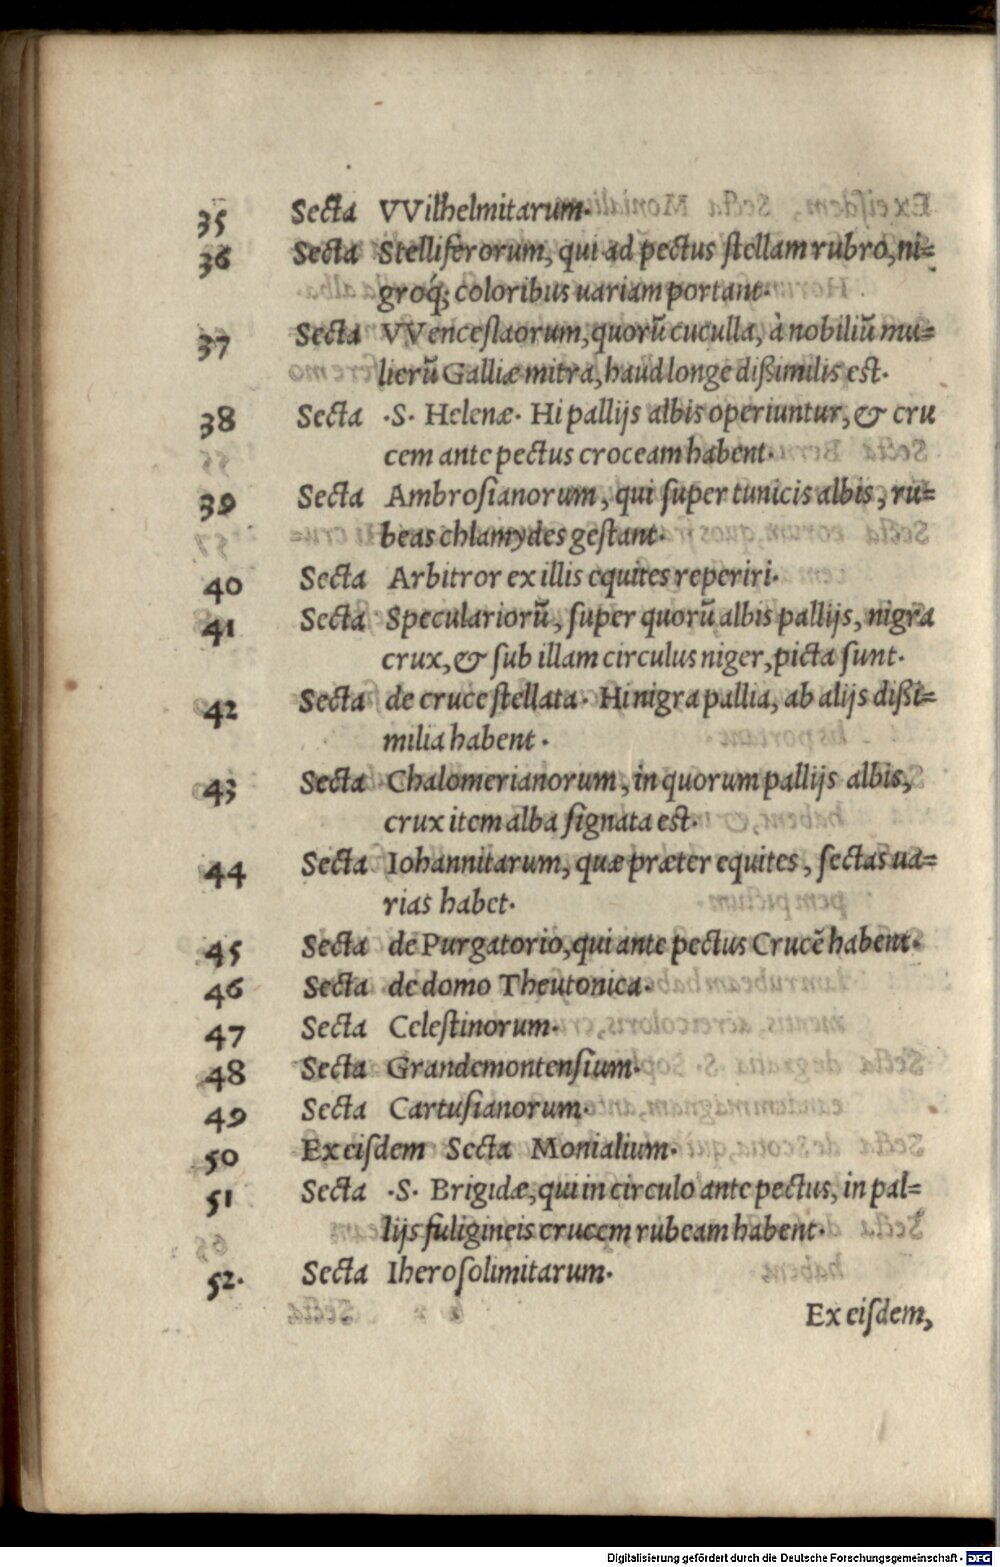 35 Secta VVilhelmitarum.
36 Secta Stelliferorum, qui ad pectus ſtellam rubro, ni=
groq́; coloribus uariam portant.
37 Secta VVenceſlaorum, quorū cuculla, à nobiliū mu=
lierū Galliæ mitra, haud longe dißimilis eſt.
38 Secta .S. Helenæ. Hi pallijs albis operiuntur, & cru
cem ante pectus croceam habent.
39 Secta Ambroſianorum, qui ſuper tunicis albis, ru=
beas chlamydes geſtant.
40 Secta Arbitror ex illis equites reperiri.
41 Secta Speculariorū, ſuper quorū albis pallijs, nigra
crux, & ſub illam circulus niger, picta ſunt.
42 Secta de cruce ſtellata. Hi nigra pallia, ab alijs dißi=
milia habent .
43 Secta Chalomerianorum, in quorum pallijs albis,
crux item alba ſignata eſt.
44 Secta Iohannitarum, quæ præter equites, ſectas ua=
rias habet.
45 Secta de Purgatorio, qui ante pectus Crucē habent.
46 Secta de domo Theutonica.
47 Secta Celeſtinorum.
48 Secta Grandemontenſium.
49 Secta Cartuſianorum.
50 Ex eiſdem Secta Monialium.
51 Secta .S. Brigidæ, qui in circulo ante pectus, in pal=
lijs fuligineis crucem rubeam habent.
52. Secta Iheroſolimitarum.
Ex eiſdem,
Digitalisierung gefördert durch die Deutsche Forschungsgemeinschaft - DFG